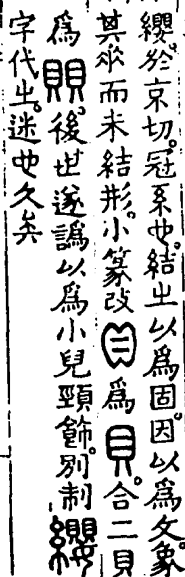 纓於京切。冠系也。結之以為固。因以為文。象
其𠂹而未結形。小篆改為貝。合二貝
為賏。後世遂譌以為小兒頸飾。別制纓
字代之。迷也久矣